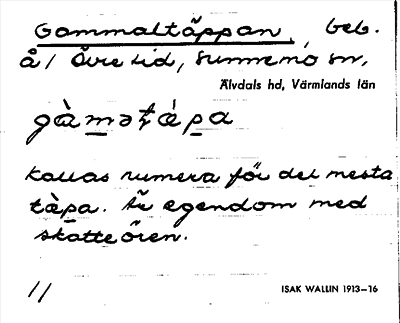 Gammaltäppan, beb.
å / Övre Lid, Sunnemo sn,
Älvdals hd, Värmlands län
gàmət̩æ̀pa
kallas numera för det mesta
tæ̀pa. Är egendom med
skatteören.
11
ISAK WALLIN 1913–16